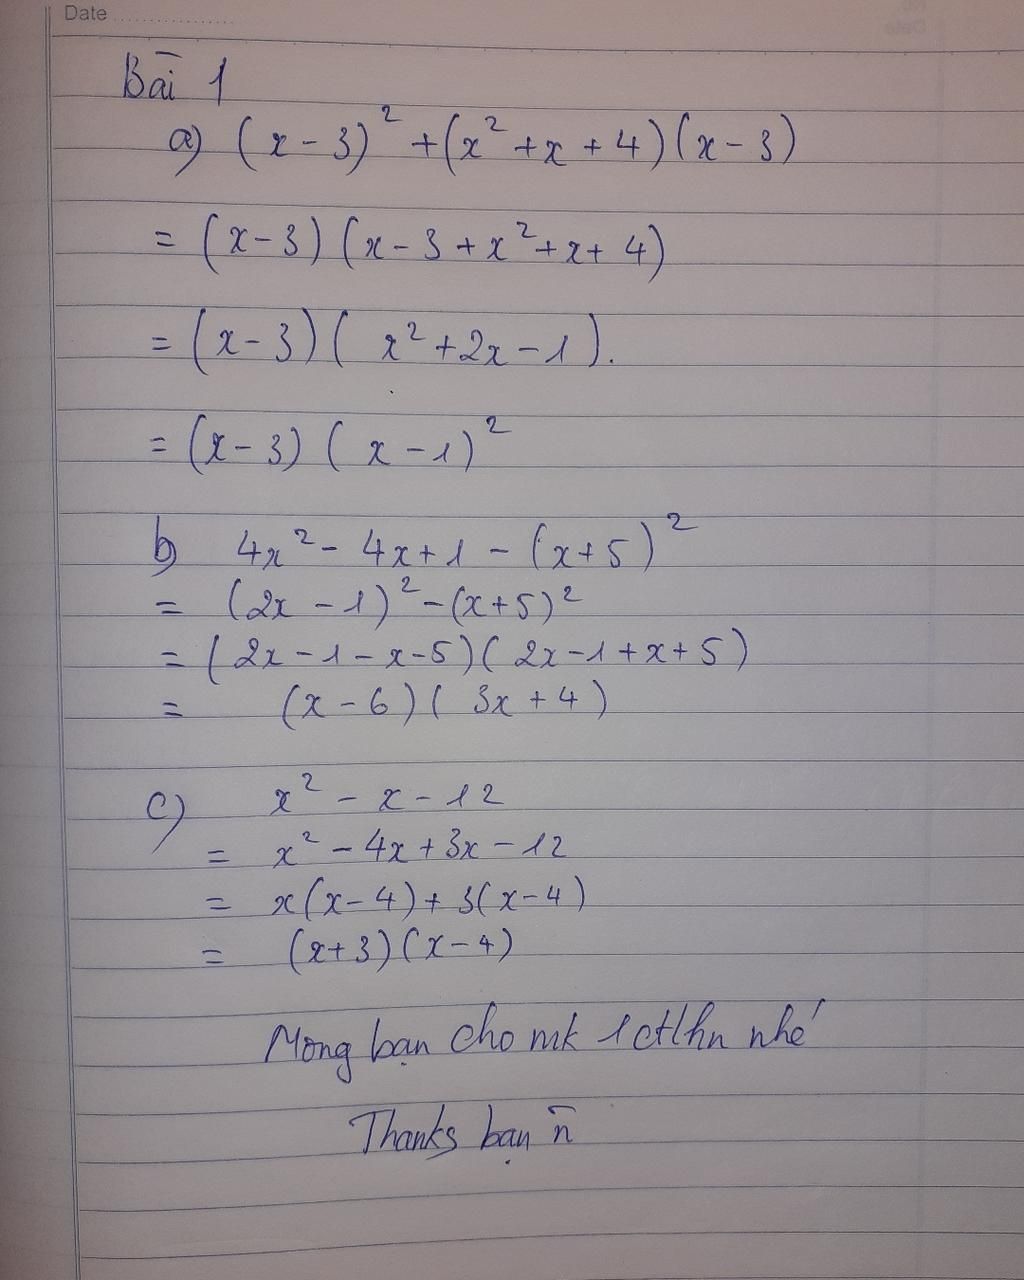 Date
Bài 1
a) (x-3)² + (x² + x + 4)(x - 3)
= (x-3) (x - 3 + x² + x + 4)
= (x-3) ( x² + 2x - 1 ).
= (x-3) ( x - 1)²
b) 4x² - 4x + 1 - (x+5)²
= (2x - 1)² - (x+5)²
= ( 2x - 1 - x - 5 ) ( 2x - 1 + x + 5 )
= (x - 6) ( 3x + 4 )
c) x² - x - 12
= x² - 4x + 3x - 12
= x(x-4) + 3(x-4)
= (x+3)(x-4)
Mong bạn cho mk 1 ctlhn nhé
Thanks bạn n